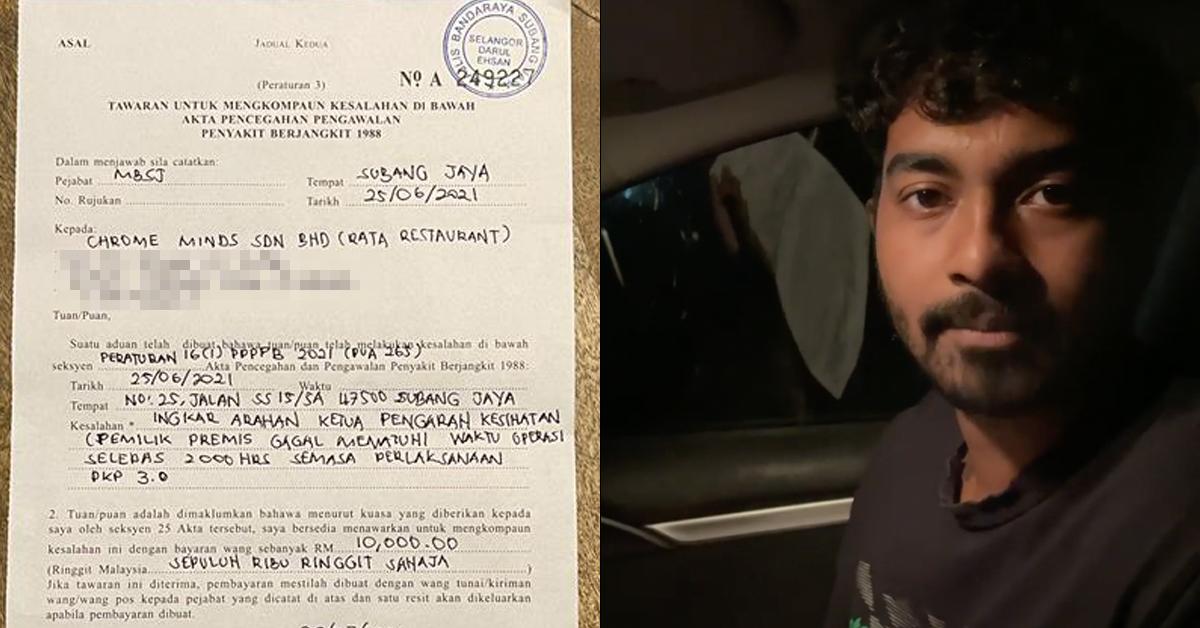 ASAL
JADUAL KEDUA
MAJLIS BANDARAYA SUBANG
SELANGOR
DARUL
EHSAN
(Peraturan 3)
Nº A 249227
TAWARAN UNTUK MENGKOMPAUN KESALAHAN DI BAWAH
AKTA PENCEGAHAN PENGAWALAN
PENYAKIT BERJANGKIT 1988
Dalam menjawab sila catatkan:
Pejabat MBSJ Tempat SUBANG JAYA
No. Rujukan Tarikh 25/06/2021
Kepada:
CHROME MINDS SDN BHD (RATA RESTAURANT)
Tuan/Puan,
Suatu aduan telah dibuat bahawa tuan/puan telah melakukan kesalahan di bawah
seksyen PERATURAN 16(1) PPPPB 2021 (PUA 265) Akta Pencegahan dan Pengawalan Penyakit Berjangkit 1988:
Tarikh 25/06/2021 Waktu
Tempat NO: 25, JALAN SS 15/5A 47500 SUBANG JAYA
Kesalahan * INGKAR ARAHAN KETUA PENGARAH KESIHATAN
(PEMILIK PREMIS GAGAL MEMATUHI WAKTU OPERASI
SELEPAS 2000HRS SEMASA PERLAKSANAAN
PKP 3.0
2. Tuan/puan adalah dimaklumkan bahawa menurut kuasa yang diberikan kepada
saya oleh seksyen 25 Akta tersebut, saya bersedia menawarkan untuk mengkompaun
kesalahan ini dengan bayaran wang sebanyak RM 10,000.00
(Ringgit Malaysia SEPULUH RIBU RINGGIT SAHAJA)
Jika tawaran ini diterima, pembayaran mestilah dibuat dengan wang tunai/kiriman
wang/wang pos kepada pejabat yang dicatat di atas dan satu resit akan dikeluarkan
apabila pembayaran dibuat.